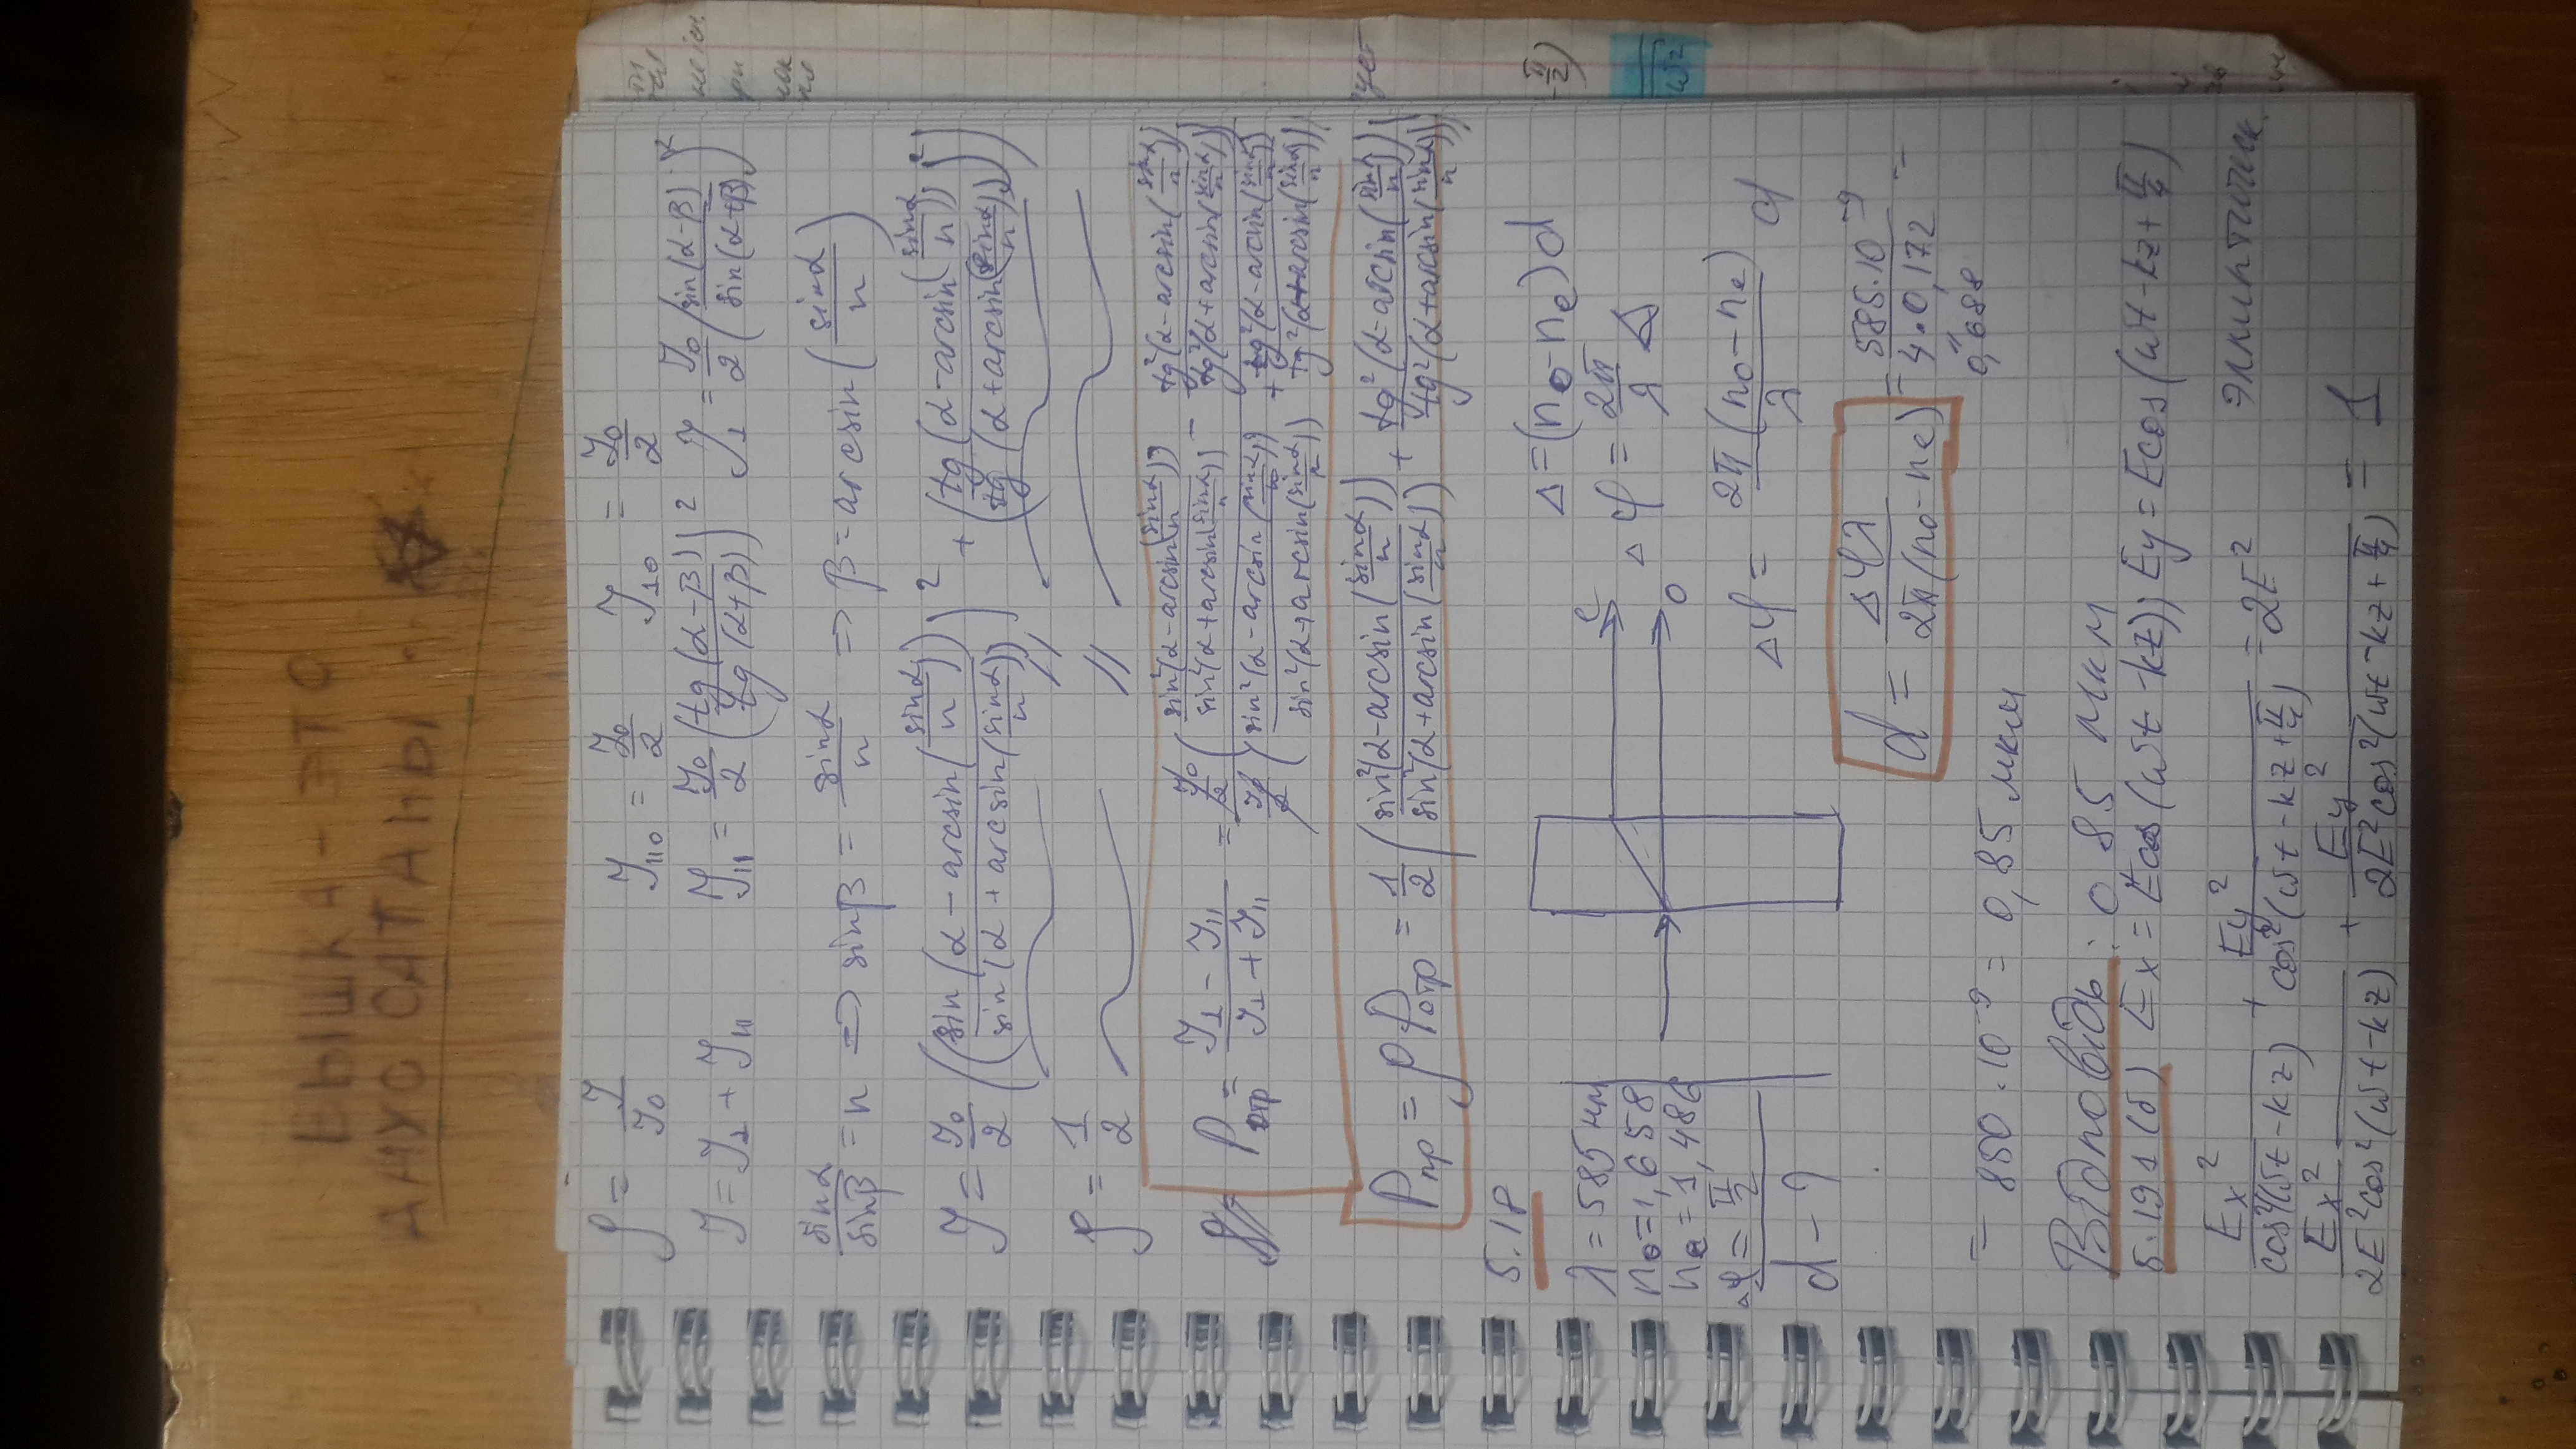 ВЫШКА - ЭТО
АНУС САТАНЫ
ρ = J/J₀   J_{||0} = J₀/2   J_{⊥0} = J₀/2
J = J_⊥ + J_{||}   J_{||} = J₀/2 (tg(α-β)/tg(α+β))²   J_⊥ = J₀/2 (sin(α-β)/sin(α+β))²
sinα/sinβ = n => sinβ = sinα/n => β = arcsin(sinα/n)
J = J₀/2 ((sin(α - arcsin(sinα/n))/sin(α + arcsin(sinα/n)))² + (tg(α - arcsin(sinα/n))/tg(α + arcsin(sinα/n)))²)
ρ = 1/2 ~ // ~
P_{отр} = (J_⊥ - J_{||})/(J_⊥ + J_{||}) = J₀/2 (sin²(α - arcsin(sinα/n))/sin²(α + arcsin(sinα/n)) - tg²(α - arcsin(sinα/n))/tg²(α + arcsin(sinα/n))) / J₀/2 (sin²(α - arcsin(sinα/n))/sin²(α + arcsin(sinα/n)) + tg²(α - arcsin(sinα/n))/tg²(α + arcsin(sinα/n)))
P_{пр} = ρ P_{отр} = 1/2 (sin²(α - arcsin(sinα/n))/sin²(α + arcsin(sinα/n)) + tg²(α - arcsin(sinα/n))/tg²(α + arcsin(sinα/n)))
5.18
λ = 585 нм
n₀ = 1,658
nₑ = 1,486
Δφ = π/2
d - ?
e
o
Δ = (n₀ - nₑ)d
Δφ = 2π/λ Δ
Δφ = 2π(n₀ - nₑ)/λ d
d = Δφλ/2π(n₀ - nₑ) = 585·10⁻⁹/4·0,172 =
0,688
= 850·10⁻⁹ = 0,85 мкм
Відповідь: 0,85 мкм
5.191(б) Ex = E cos(ωt - kz); Ey = E cos(ωt - kz + π/4)
Ex²/cos²(ωt - kz) + Ey²/cos²(ωt - kz + π/4) = 2E²   эллиптическ.
Ex²/2E²cos²(ωt - kz) + Ey²/2E²cos²(ωt - kz + π/4) = 1